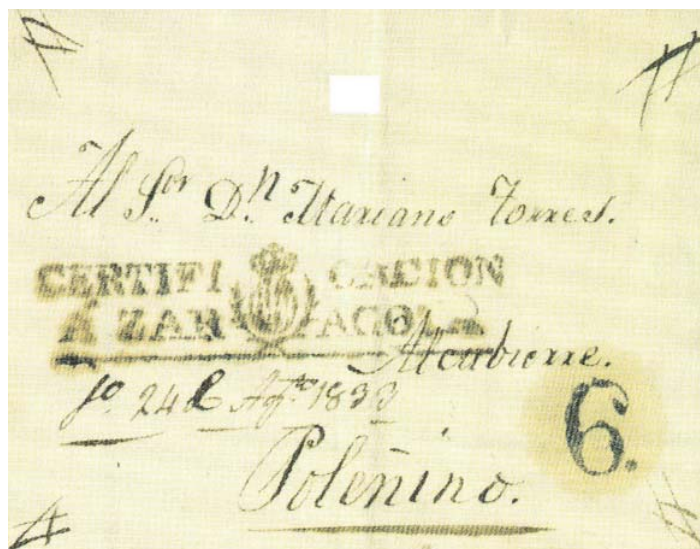 Al S.or D.n Mariano Torres.
CERTIFI CACION
A ZAR AGOZA
Alcubierre.
24 Ag.to 1833
6.
Poleñino.